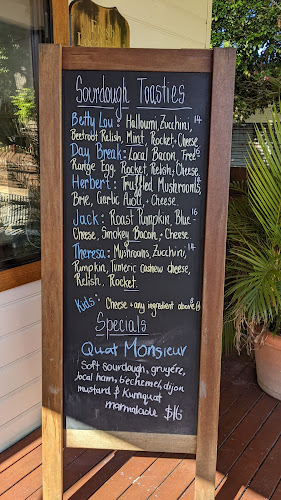 Sourdough Toasties
Betty Lou: Halloumi, Zucchini, 14
Beetroot Relish, Mint, Rocket, Cheese
Day Break: Local Bacon, Free-
Range Egg, Rocket, Relish, Cheese
Herbert: Truffled Mushrooms, 14
Brie, Garlic Aioli, + Cheese.
Jack: Roast Pumpkin, Blue 16
Cheese, Smokey Bacon, + Cheese
Theresa: Mushrooms, Zucchini, 14
Pumpkin, Tumeric cashew cheese,
Relish, Rocket.
Kids: Cheese + any ingredient above 8
Specials
Quat Monsieur
Soft sourdough, gruyére,
local ham, béchemel, dijon
mustard & Kumquat
marmalade $16